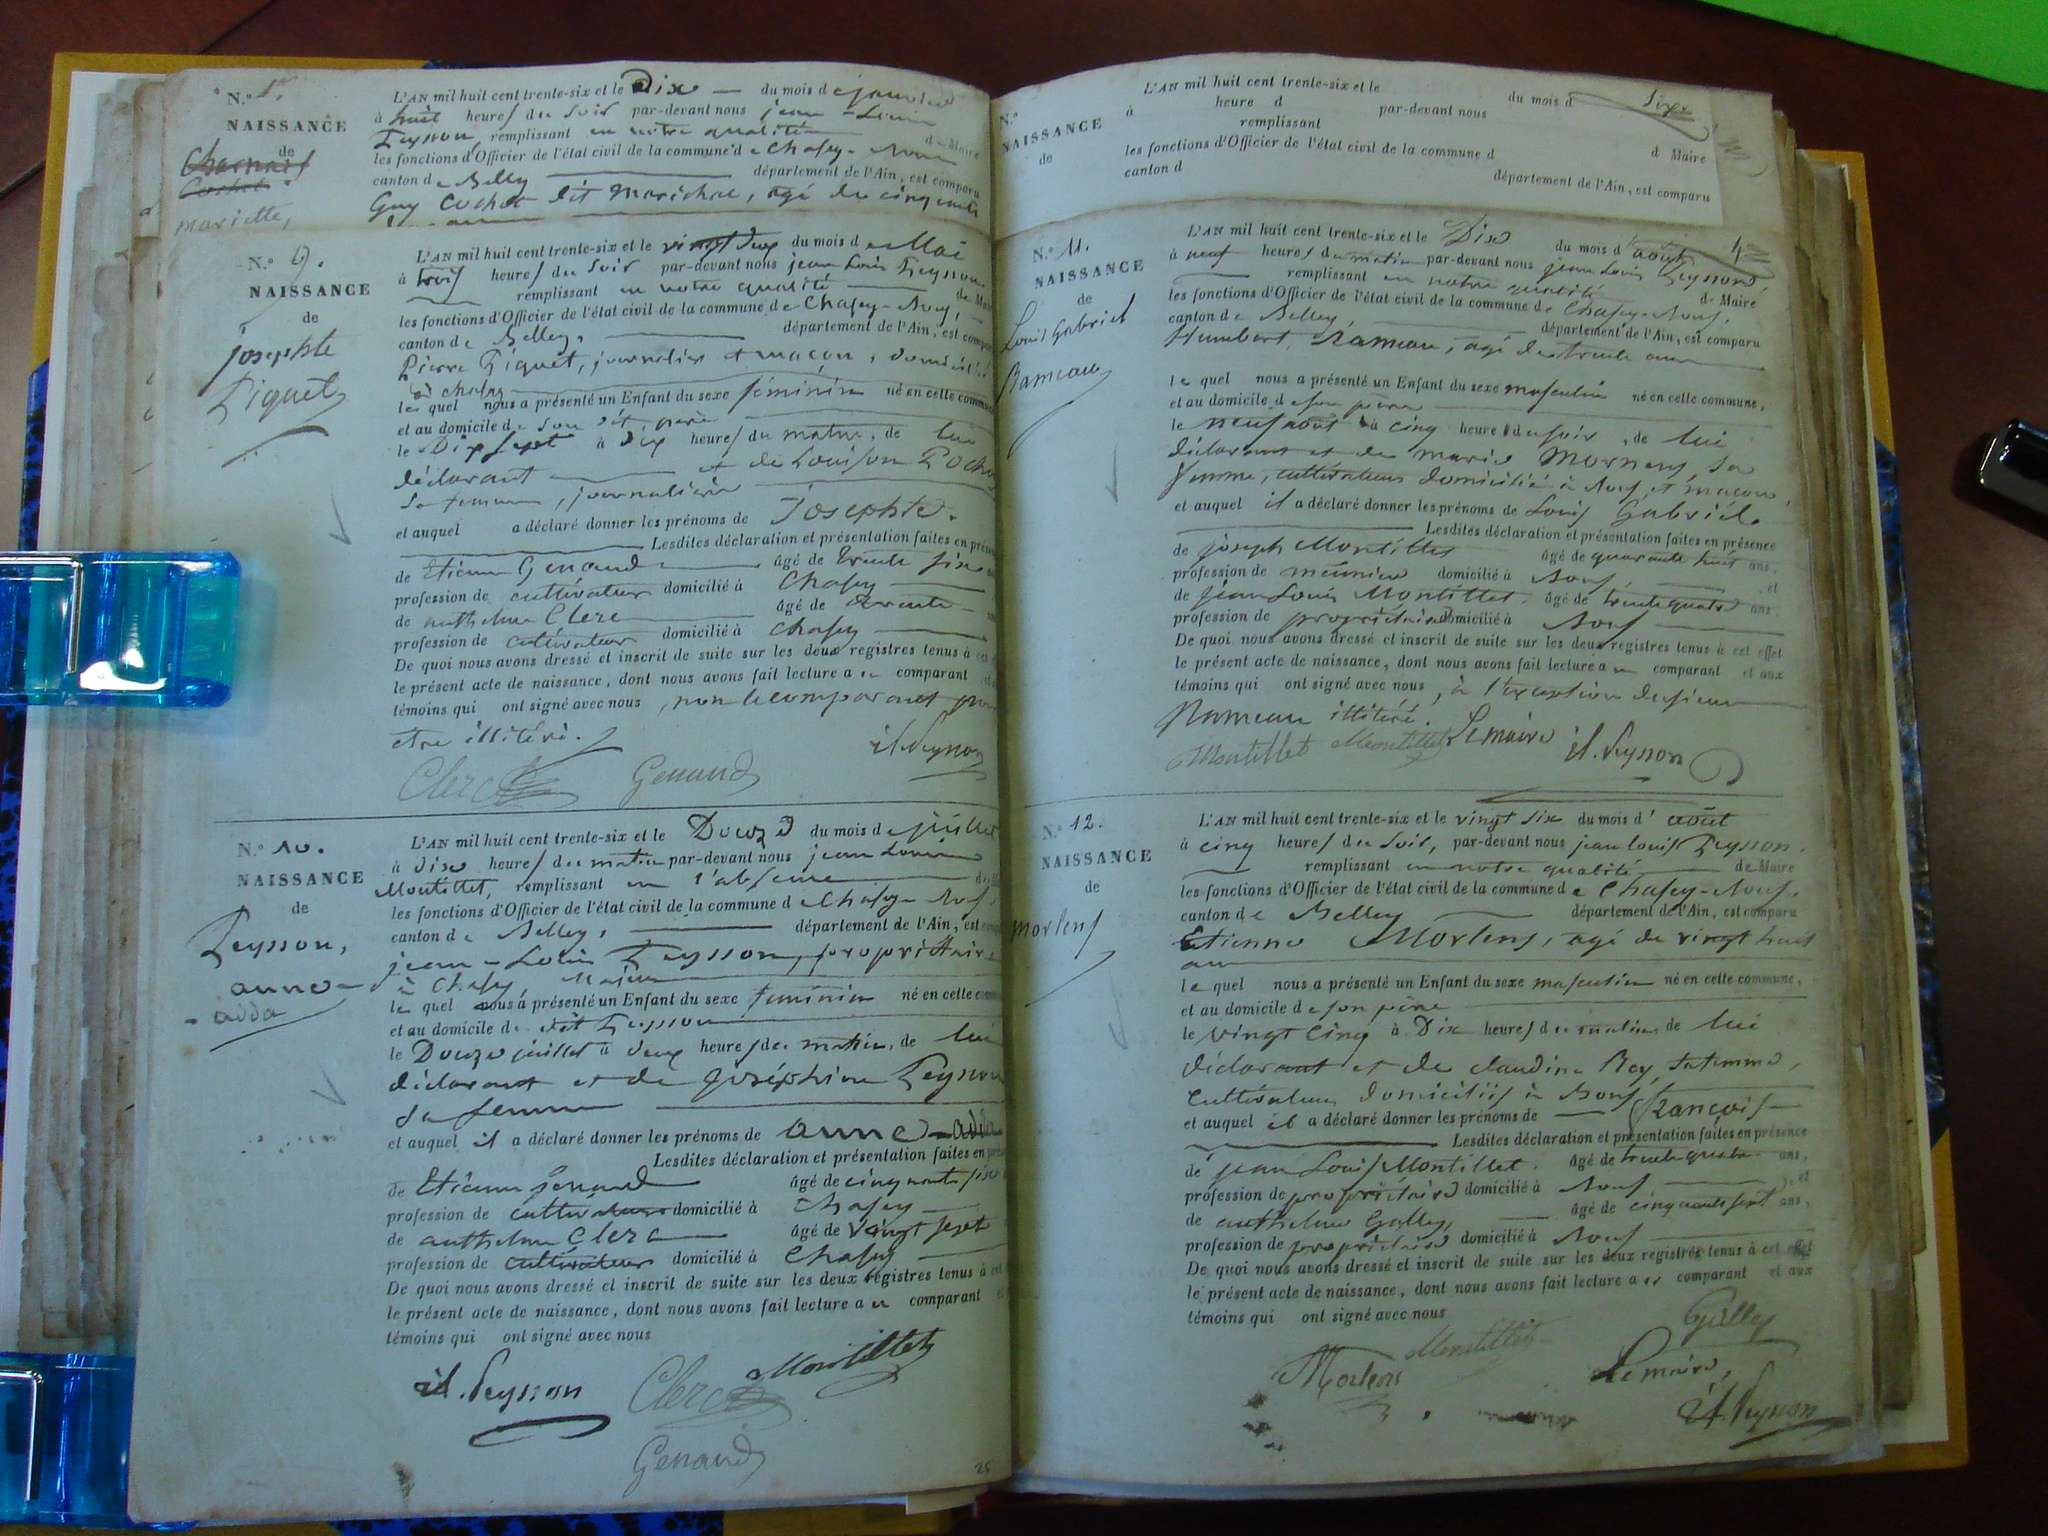 N.° 1.er
NAISSANCE
de
mariette,
L'AN mil huit cent trente-six et le Dix du mois de janvier
à huit heures du soir par-devant nous jean-Louis
Peysson, remplissant en notre qualité de Maire
les fonctions d'Officier de l'état civil de la commune de Chasey-
canton de Belley département de l'Ain, est comparu
Guy Cochet dit Marichal, agé de cinquante
N.° 9.
NAISSANCE
de
josephte
Piquet
L'AN mil huit cent trente-six et le vingt deux du mois de Mai
à trois heures du soir par-devant nous jean Louis Peysson
remplissant en notre qualité de Maire
les fonctions d'Officier de l'état civil de la commune de Chasey-Bons,
canton de Belley, département de l'Ain, est comparu
Pierre Piquet, journalier et maçon, domicilié
à chasey
le quel nous a présenté un Enfant du sexe féminin né en cette commune
et au domicile de son dit père
le Dix sept à dix heures du matin, de lui
déclarant et de Louison Pochet
sa femme, journalière
et auquel a déclaré donner les prénoms de Josephte.
Lesdites déclaration et présentation faites en présence
de Etienne Genaud âgé de trente six
profession de cultivateur domicilié à Chasey
de anthelme Clerc âgé de trente
profession de cultivateur domicilié à Chasey
De quoi nous avons dressé et inscrit de suite sur les deux registres tenus à cet
le présent acte de naissance, dont nous avons fait lecture au comparant et
témoins qui ont signé avec nous, non le comparant pour
etre illitéré.
j.l. Peysson
Clerc Genaud
N.° 10.
NAISSANCE
de
Peysson,
anne-
adda
L'AN mil huit cent trente-six et le Douze du mois de juillet
à dix heures du matin par-devant nous jean Louis
Montillet, remplissant en l'absence
les fonctions d'Officier de l'état civil de la commune de Chasey-Bons,
canton de Belley, département de l'Ain, est comparu
jean-Louis Peysson, propriétaire
à Chasey
le quel nous a présenté un Enfant du sexe feminin né en cette commune
et au domicile du dit Peysson
le Douze juillet à deux heures du matin, de lui
déclarant et de joséphine Peysson
sa femme
et auquel il a déclaré donner les prénoms de anne-adda
Lesdites déclaration et présentation faites en présence
de Etienne Genaud âgé de cinquante six
profession de cultivateur domicilié à Chasey
de anthelme Clerc âgé de vingt sept
profession de cultivateur domicilié à Chasey
De quoi nous avons dressé et inscrit de suite sur les deux registres tenus à cet
le présent acte de naissance, dont nous avons fait lecture au comparant et
témoins qui ont signé avec nous
j.l. Peysson Clerc Montillet
Genaud
25
N.°
NAISSANCE
de
L'AN mil huit cent trente-six et le du mois d
à heure d par-devant nous
remplissant d Maire
les fonctions d'Officier de l'état civil de la commune d
canton d département de l'Ain, est comparu
N.° 11.
NAISSANCE
de
Louis Gabriel
Rameau
L'AN mil huit cent trente-six et le Dix du mois d'août
à neuf heures du matin par-devant nous jean Louis Peysson,
remplissant en notre qualité de Maire
les fonctions d'Officier de l'état civil de la commune de Chasey-Bons,
canton de Belley département de l'Ain, est comparu
Humbert Rameau, agé de trente ans
le quel nous a présenté un Enfant du sexe masculin né en cette commune,
et au domicile de son père
le neuf août à cinq heures du soir, de lui
déclarant et de marie Mornens, sa
femme, cultivateurs domicilié à Bons, et maçon,
et auquel il a déclaré donner les prénoms de Louis Gabriel.
Lesdites déclaration et présentation faites en présence
de joseph Montillet âgé de quarante huit ans,
profession de meunier domicilié à Bons, et
de jean Louis Montillet, âgé de trente quatre ans
profession de propriétaire domicilié à Bons
De quoi nous avons dressé et inscrit de suite sur les deux registres tenus à cet effet
le présent acte de naissance, dont nous avons fait lecture au comparant et aux
témoins qui ont signé avec nous, à l'exception du sieur
Rameau illitéré.
Montillet Montillet Le maire j.l. Peysson
N.° 12.
NAISSANCE
de
Morlens
L'AN mil huit cent trente-six et le vingt six du mois d'août
à cinq heures du soir, par-devant nous jean louis Peysson,
remplissant en notre qualité de Maire
les fonctions d'Officier de l'état civil de la commune de Chasey-Bons,
canton de Belley département de l'Ain, est comparu
Etienne Morlens, agé de vingt huit
ans
le quel nous a présenté un Enfant du sexe masculin né en cette commune,
et au domicile de son père
le vingt cinq à Dix heures du matin de lui
déclarant et de claudine Rey sa femme,
cultivateurs domiciliés à Bons
et auquel il a déclaré donner les prénoms de françois
Lesdites déclaration et présentation faites en présence
de jean Louis Montillet. âgé de trente quatre ans,
profession de propriétaire domicilié à Bons, et
de anthelme Galley, âgé de cinquante sept ans,
profession de propriétaire domicilié à Bons
De quoi nous avons dressé et inscrit de suite sur les deux registres tenus à cet effet
le présent acte de naissance, dont nous avons fait lecture au comparant et aux
témoins qui ont signé avec nous
Galley
Morlens Montillet Le maire,
j.l. Peysson